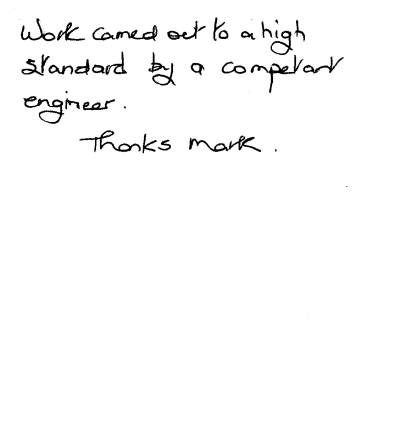 Work carried out to a high
standard by a competant
engineer.
Thanks Mark.